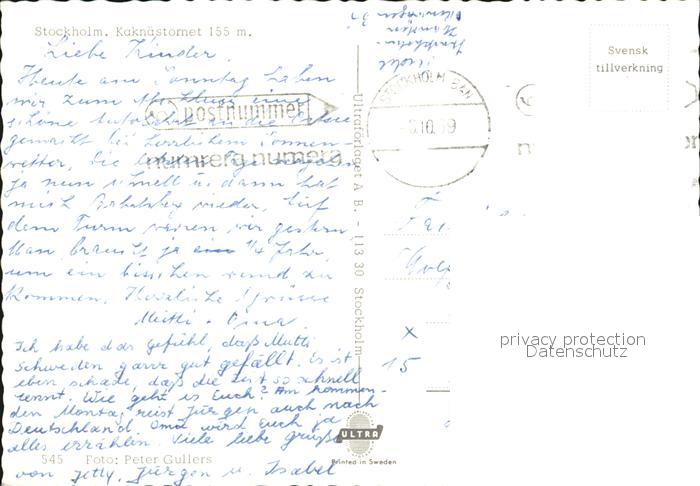 Stockholm. Kaknästornet 155 m.
Liebe Kinder,
Heute am Sonntag haben
wir zum Abschluss eine
schöne Autofahrt an die Ostsee
gemacht bei herrlichem Sonnen-
wetter. Die
ja nun schnell u. dann hat
mich wieder. Auf
dem Turm waren wir gestern.
Man braucht ja ein 1/4 Jahr,
um ein bisschen rund zu
kommen. Herzliche Grüsse
Mutti - Oma.
Ich habe das Gefühl, daß Mutti
Schweden ganz gut gefällt. Es ist
eben schade, daß die Zeit so schnell
rennt. Wie geht es Euch? Am kommen-
den Montag reist Jürgen auch nach
Deutschland. Oma wird Euch ja
alles erzählen. Viele liebe Grüße
von Jetty, Jürgen u. Isabel
545 Foto: Peter Gullers
postnummer
numrera numera
STOCKHOLM BAN
10 69
Ultraförlaget A. B. - 113 30 Stockholm
Svensk
tillverkning
x
15
privacy protection
Datenschutz
ULTRA
Printed in Sweden